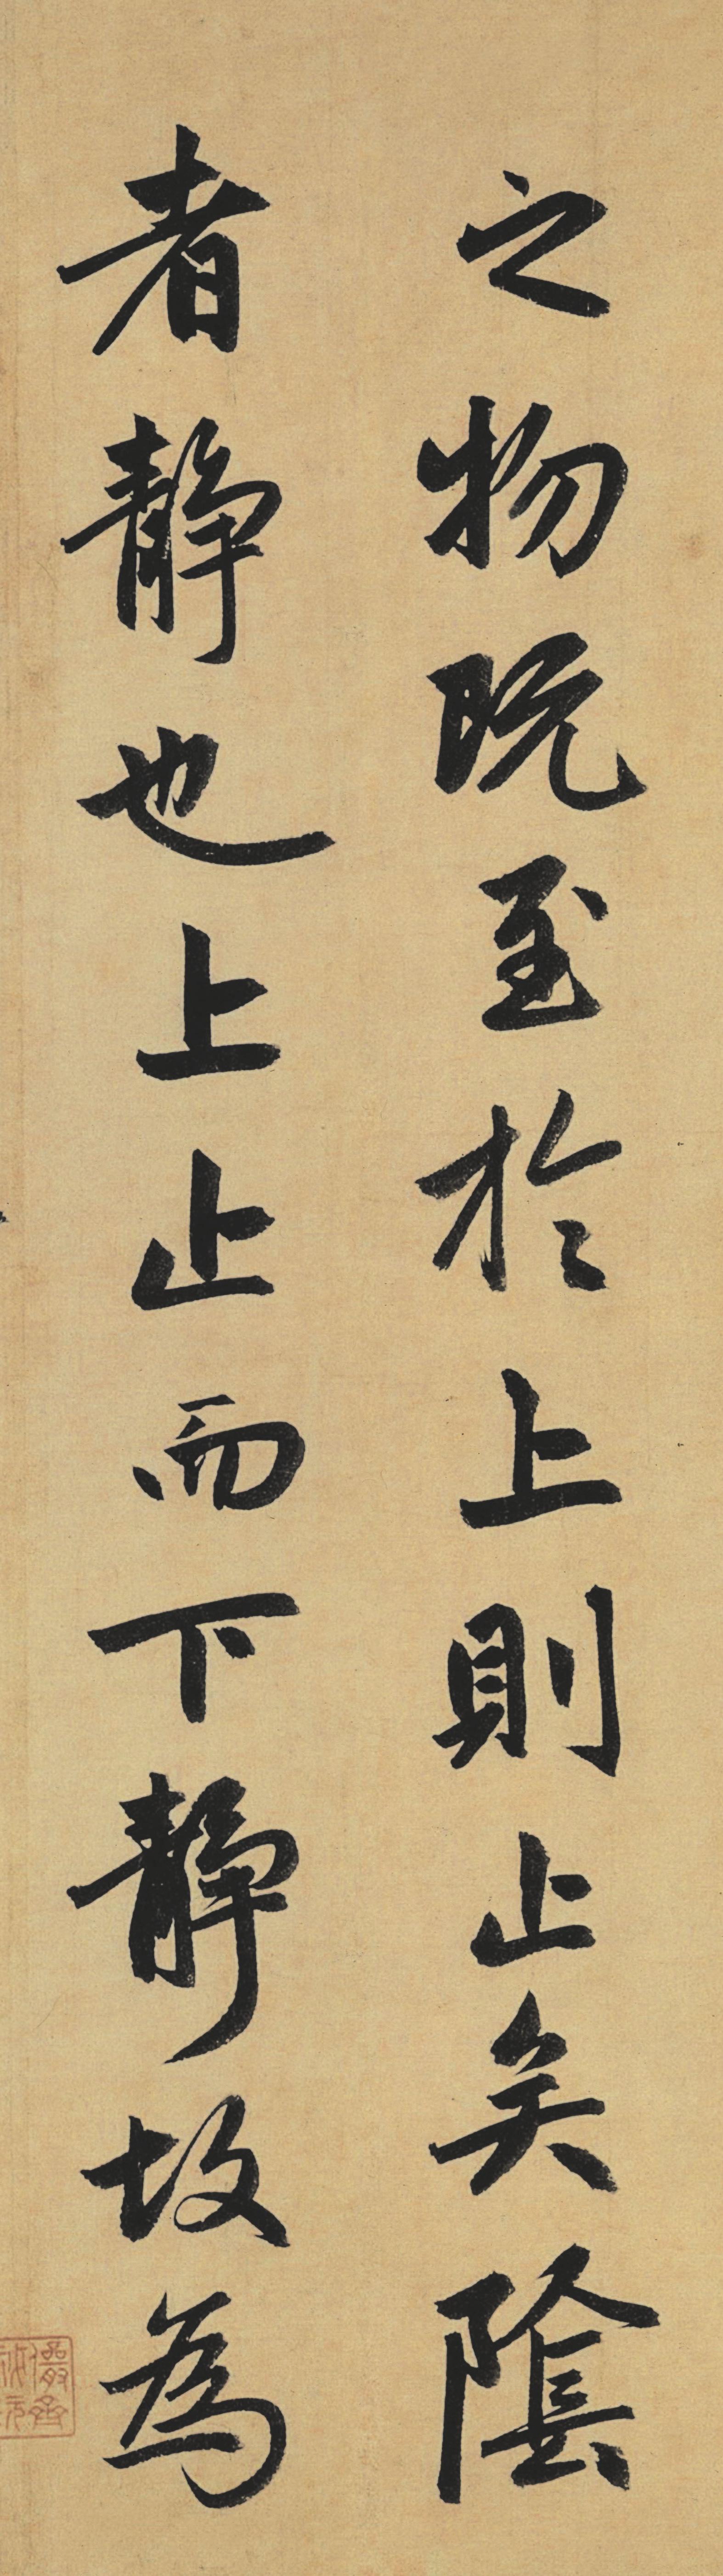 之物既至於上則止矣陰
者静也上止而下静故為